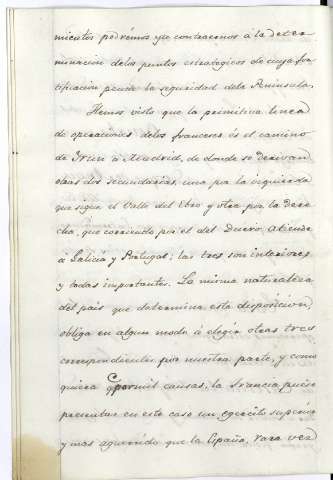 mientos podrémos yá contraernos á la deter-
minacion delos puntos estrategicos de cuya for-
tificacion pende la seguridad dela Peninsula.
Hemos visto que la primitiva linea
de operaciones delos franceses és el camino
de Irun á Madrid, de donde se derivan
otras dos secundarias, una por la izquierda
que sigue el Valle del Ebro y otra por la dere-
cha, que corriendo por el del Duero, atiende
á Galicia y Portugal; las tres son interiores
y todas importantes. La misma naturaleza
del pais que determina esta disposicion,
obliga en algun modo á elegir otras tres
correspondientes por nuestra parte, y como
quiera que por mil causas, la Francia puede
presentar en este caso un egercito superior
y mas aguerrido que la España, rara vez